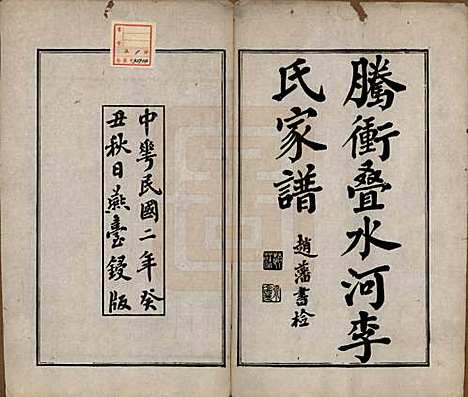 騰衝疊水河李
氏家譜
趙藩書檢
中華民國二年癸
丑秋日燕臺鋟版